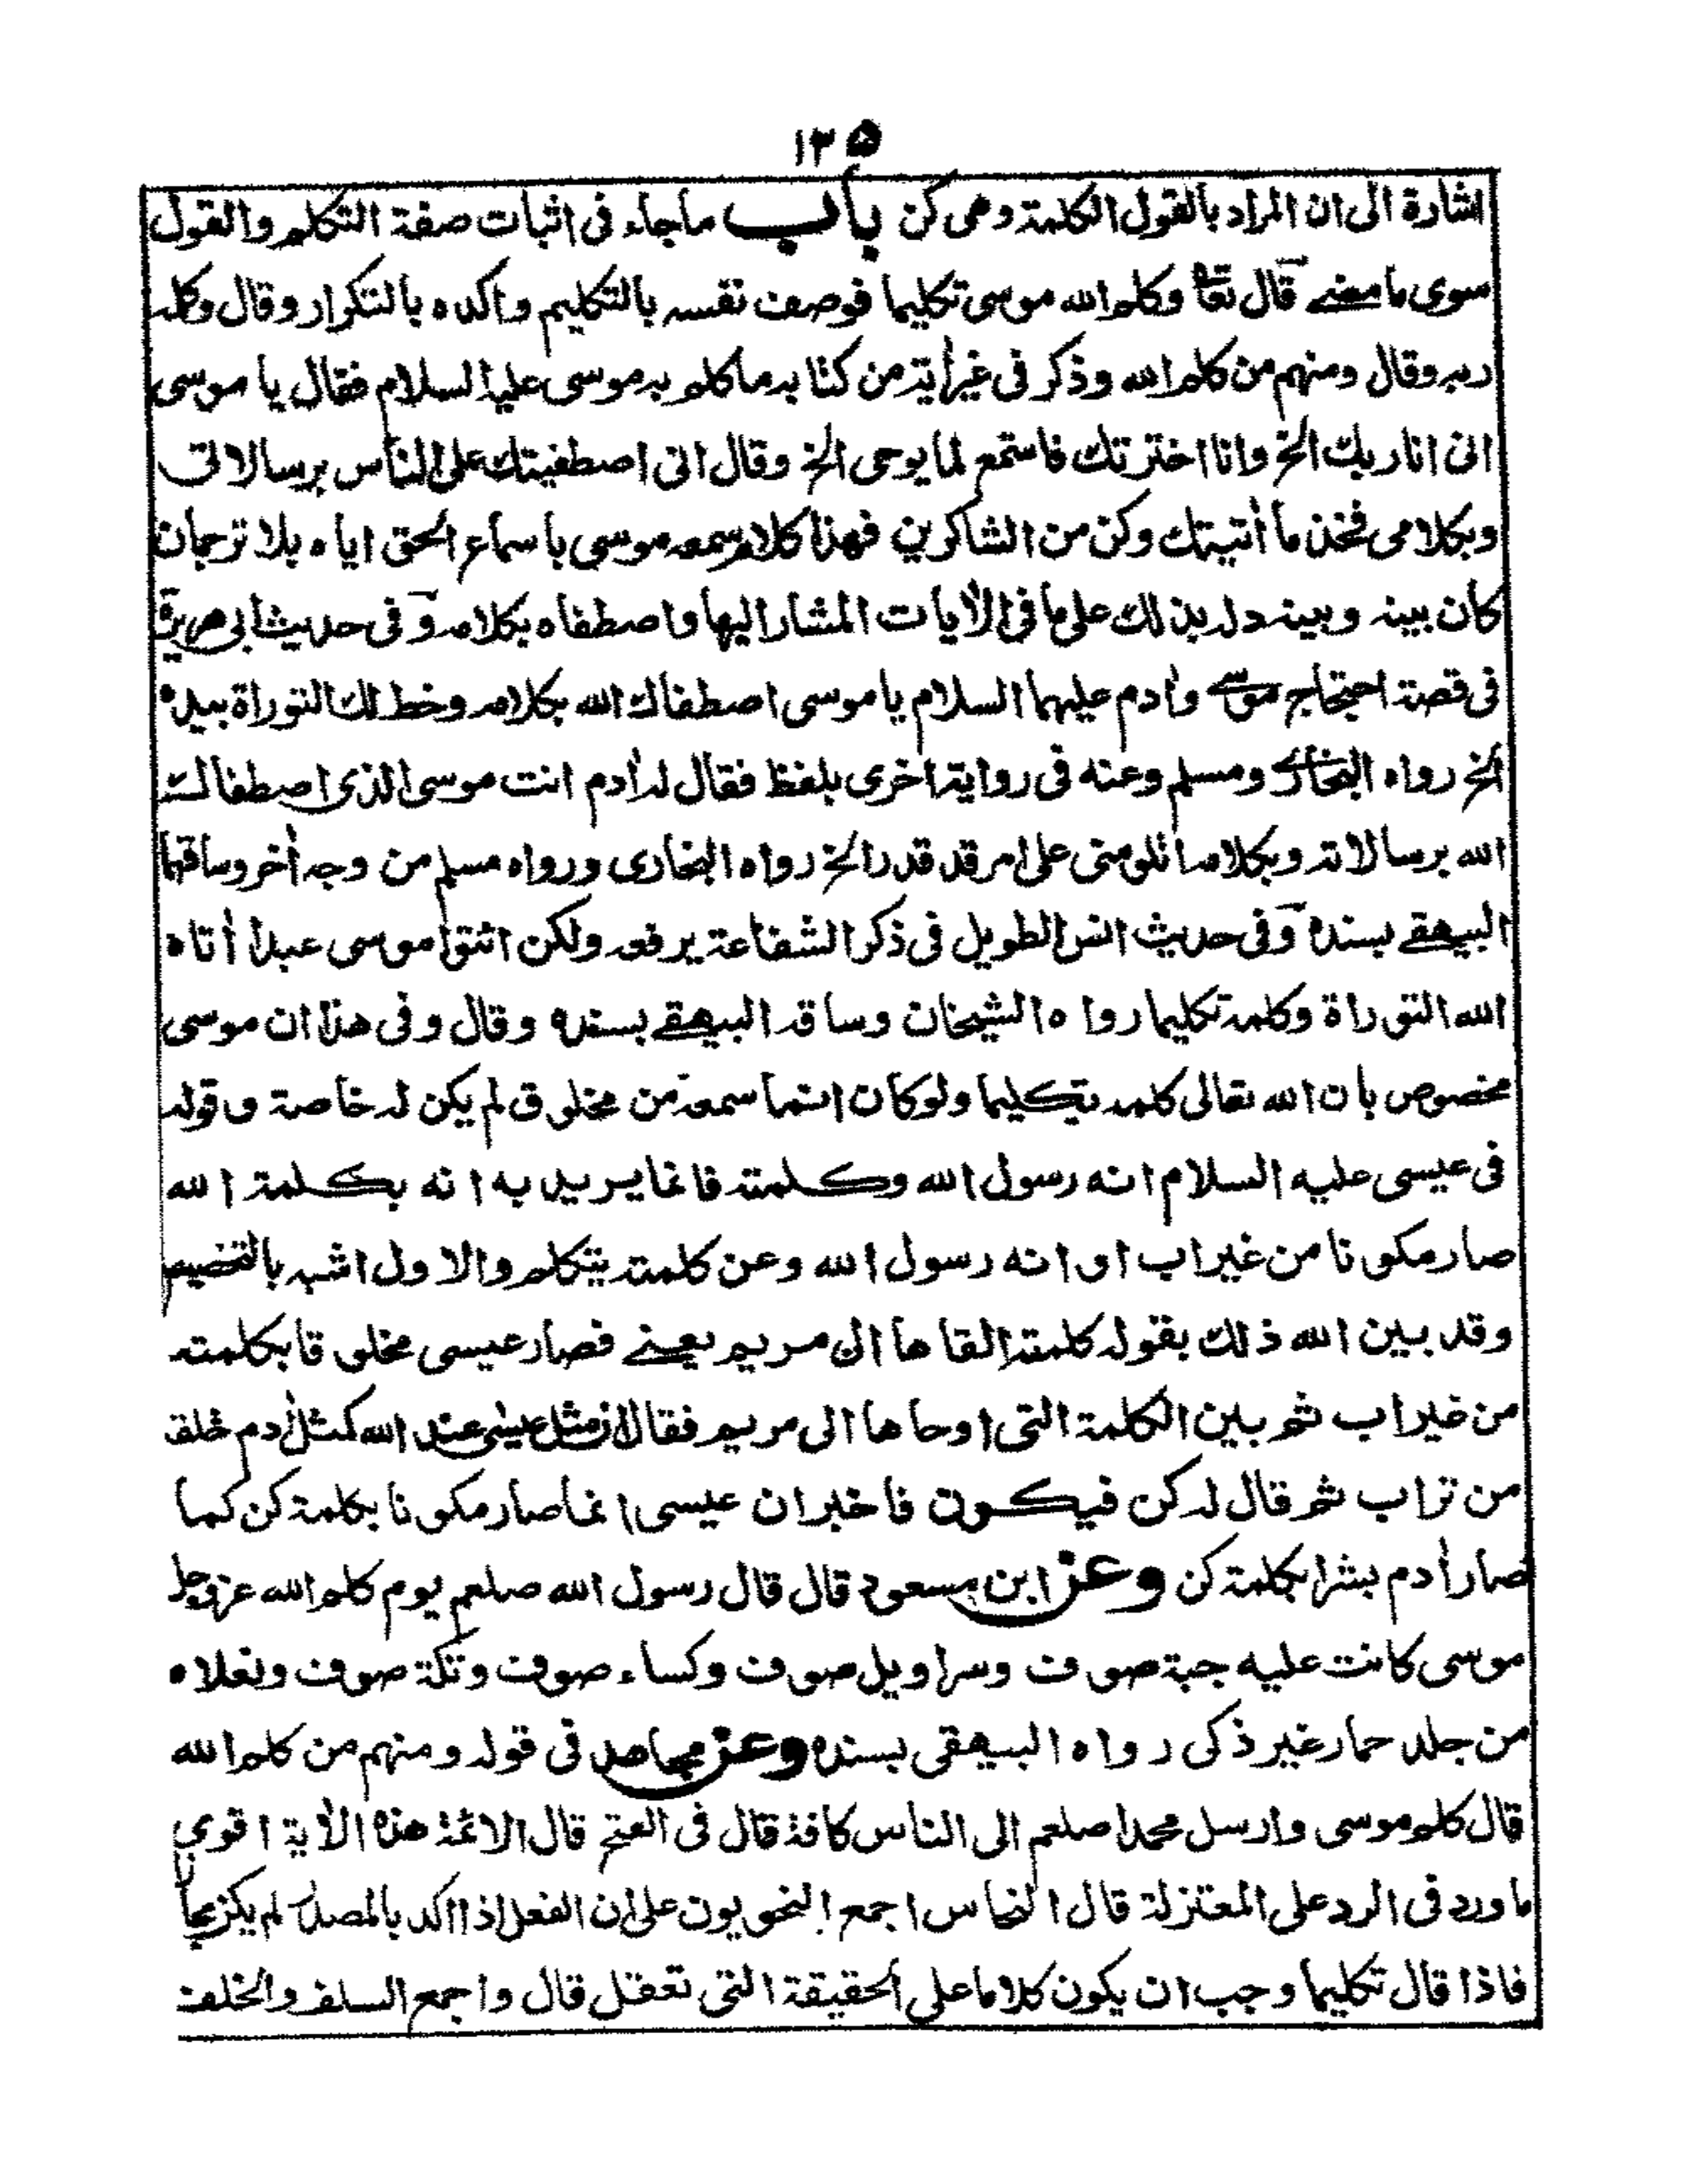 ١٣٥
اشارة الى ان المراد بالقول الكلمة وهى كن باب ماجاء فى اثبات صفة التكلم والقول
سوى ما مضے قال تعا وكلم الله موسى تكليما فوصف نفسه بالتكليم واكده بالتكرار وقال وكلمه
ربه وقال ومنهم من كلم الله وذكر فى غير أية من كتابه ما كلم به موسى عليه السلام فقال يا موسى
انى انا ربك الخ وانا اخترتك فاستمع لما يوحى الخ وقال انى اصطفيتك على الناس برسالاتى
وبكلامى فخذ ما أتيتك وكن من الشاكرين فهذا كلام سمعه موسى باسماع الحق اياه بلا ترجمان
كان بينه وبينه دله بذلك على ما فى الأيات المشار اليها واصطفاه بكلامه وفى حديث ابى هريرة
فى قصة احتجاج موسے وأدم عليهما السلام يا موسى اصطفاك الله بكلامه وخط لك التوراة بيده
الخ رواه البخارى ومسلم وعنه فى رواية اخرى بلفظ فقال له أدم انت موسى الذى اصطفاك
الله برسالاته وبكلامه اتلومنى على امر قد قدر الخ رواه البخارى ورواه مسلم من وجه أخر وساقهما
البيهقے بسنده وفى حديث انس الطويل فى ذكر الشفاعة يرفعه ولكن ائتوا موسى عبدا أتاه
الله التوراة وكلمه تكليما رواه الشيخان وساقه البيهقے بسنده وقال وفى هذا ان موسى
مخصوص بان الله تعالى كلمه تكليما ولو كان انما سمعه من مخلوق لم يكن له خاصة وقوله
فى عيسى عليه السلام انه رسول الله وكلمته فانما يريد به انه بكلمة الله
صار مكونا من غير اب او انه رسول الله وعن كلمته يتكلم والاول اشبه بالتخصيص
وقد بين الله ذلك بقوله كلمته القاها الى مريم يعنے فصار عيسى مخلوقا بكلمته
من غير اب ثم بين الكلمة التى اوحاها الى مريم فقال ان مثل عيسى عند الله كمثل أدم خلقه
من تراب ثم قال له كن فيكون فاخبر ان عيسى انما صار مكونا بكلمة كن كما
صار أدم بشرا بكلمة كن وعن ابن مسعود قال قال رسول الله صلعم يوم كلم الله عز وجل
موسى كانت عليه جبة صوف وسراويل صوف وكساء صوف وتكة صوف ونعلاه
من جلد حمار غير ذكى رواه البيهقى بسنده وعن مجاهد فى قوله ومنهم من كلم الله
قال كلم موسى وارسل محمدا صلعم الى الناس كافة قال فى الفتح قال الائمة هذه الأية اقوى
ما ورد فى الرد على المعتزلة قال النحاس اجمع النحويون على ان الفعل اذا اكد بالمصدر لم يكن مجازا
فاذا قال تكليما وجب ان يكون كلاما على الحقيقة التى تعقل قال واجمع السلف والخلف